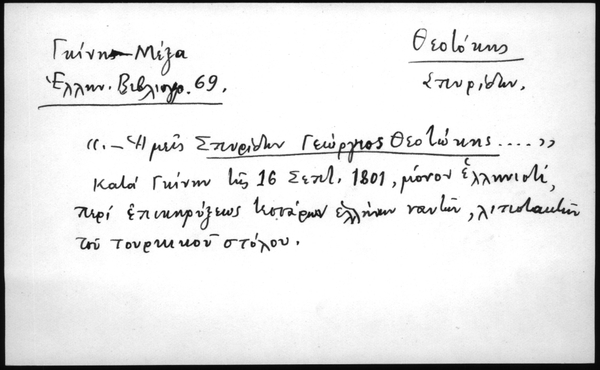 Γκίνης-Μέξα
Ἑλλην. Βιβλιογρ. 69.
Θεοτόκης
Σπυρίδων.
«.– Ἡμεῖς Σπυρίδων Γεώργιος Θεοτώκης .....»
κατά Γκίνην τῆς 16 Σεπτ. 1801, μόνον ἑλληνιστί,
περί ἐπικηρύξεως τεσσάρων ἑλλήνων ναυτῶν, λιποτακτῶν
τοῦ τουρκικοῦ στόλου.